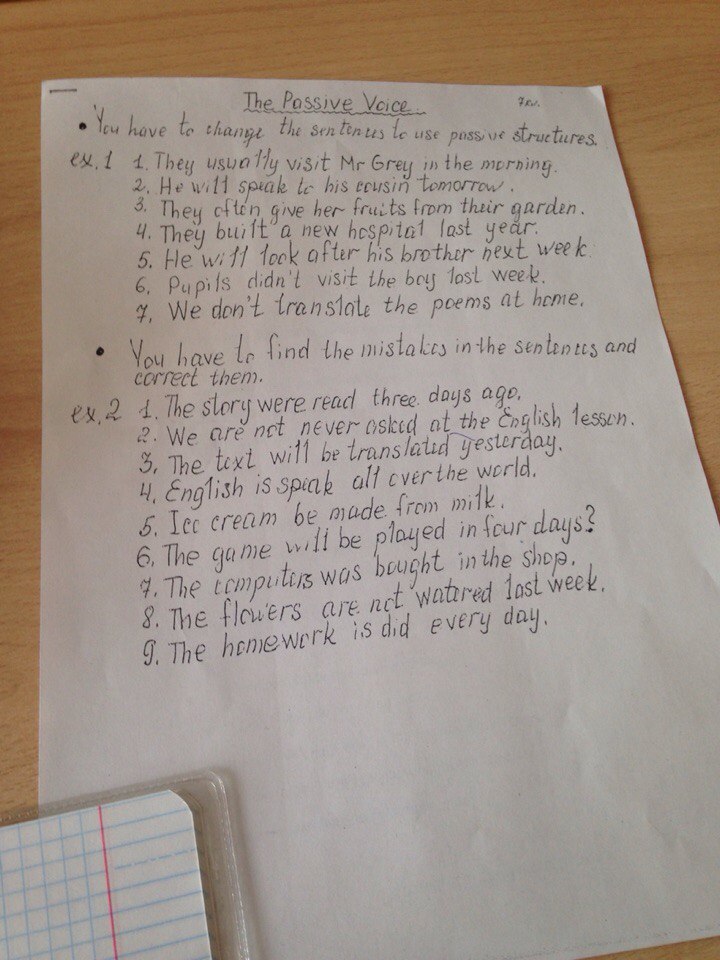 The Passive Voice 7кл.
• You have to change the sentences to use passive structures.
ex. 1 1. They usually visit Mr Grey in the morning.
2. He will speak to his cousin tomorrow.
3. They often give her fruits from their garden.
4. They built a new hospital last year.
5. He will look after his brother next week.
6. Pupils didn't visit the boy last week.
7. We don't translate the poems at home.
• You have to find the mistakes in the sentences and
correct them.
ex. 2 1. The story were read three days ago.
2. We are not never asked at the English lesson.
3. The text will be translated yesterday.
4. English is speak all over the world.
5. Ice cream be made from milk.
6. The game will be played in four days?
7. The computers was bought in the shop.
8. The flowers are not watered last week.
9. The homework is did every day.